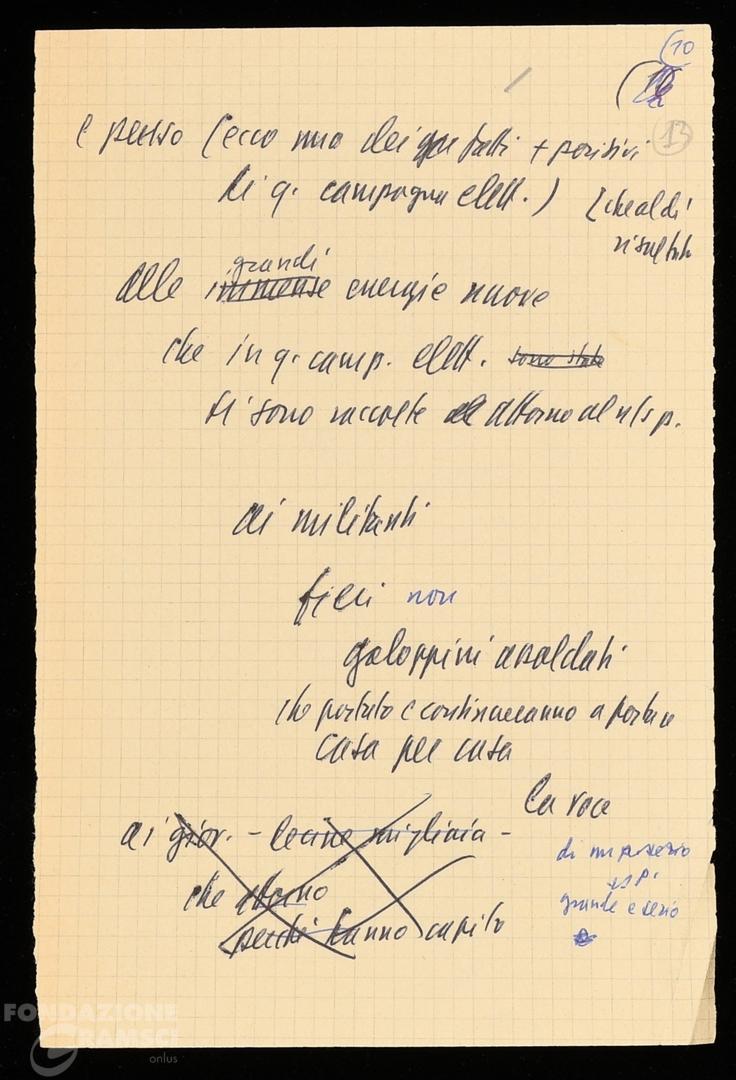 (10
(12
13
e penso (ecco uno dei fatti + positivi
di q. campagna elett.) [che al di
risultato
grandi
alle immense energie nuove
che in q. camp. elett. sono state
si sono raccolte attorno al n/s p.
ai militanti
fieri non
galoppini assoldati
che portato e continueranno a portare
casa per casa
la voce
ai giov. - decine migliaia -
di un p. serio
grande e serio
che
perché hanno capito
FONDAZIONE
GRAMSCI
onlus